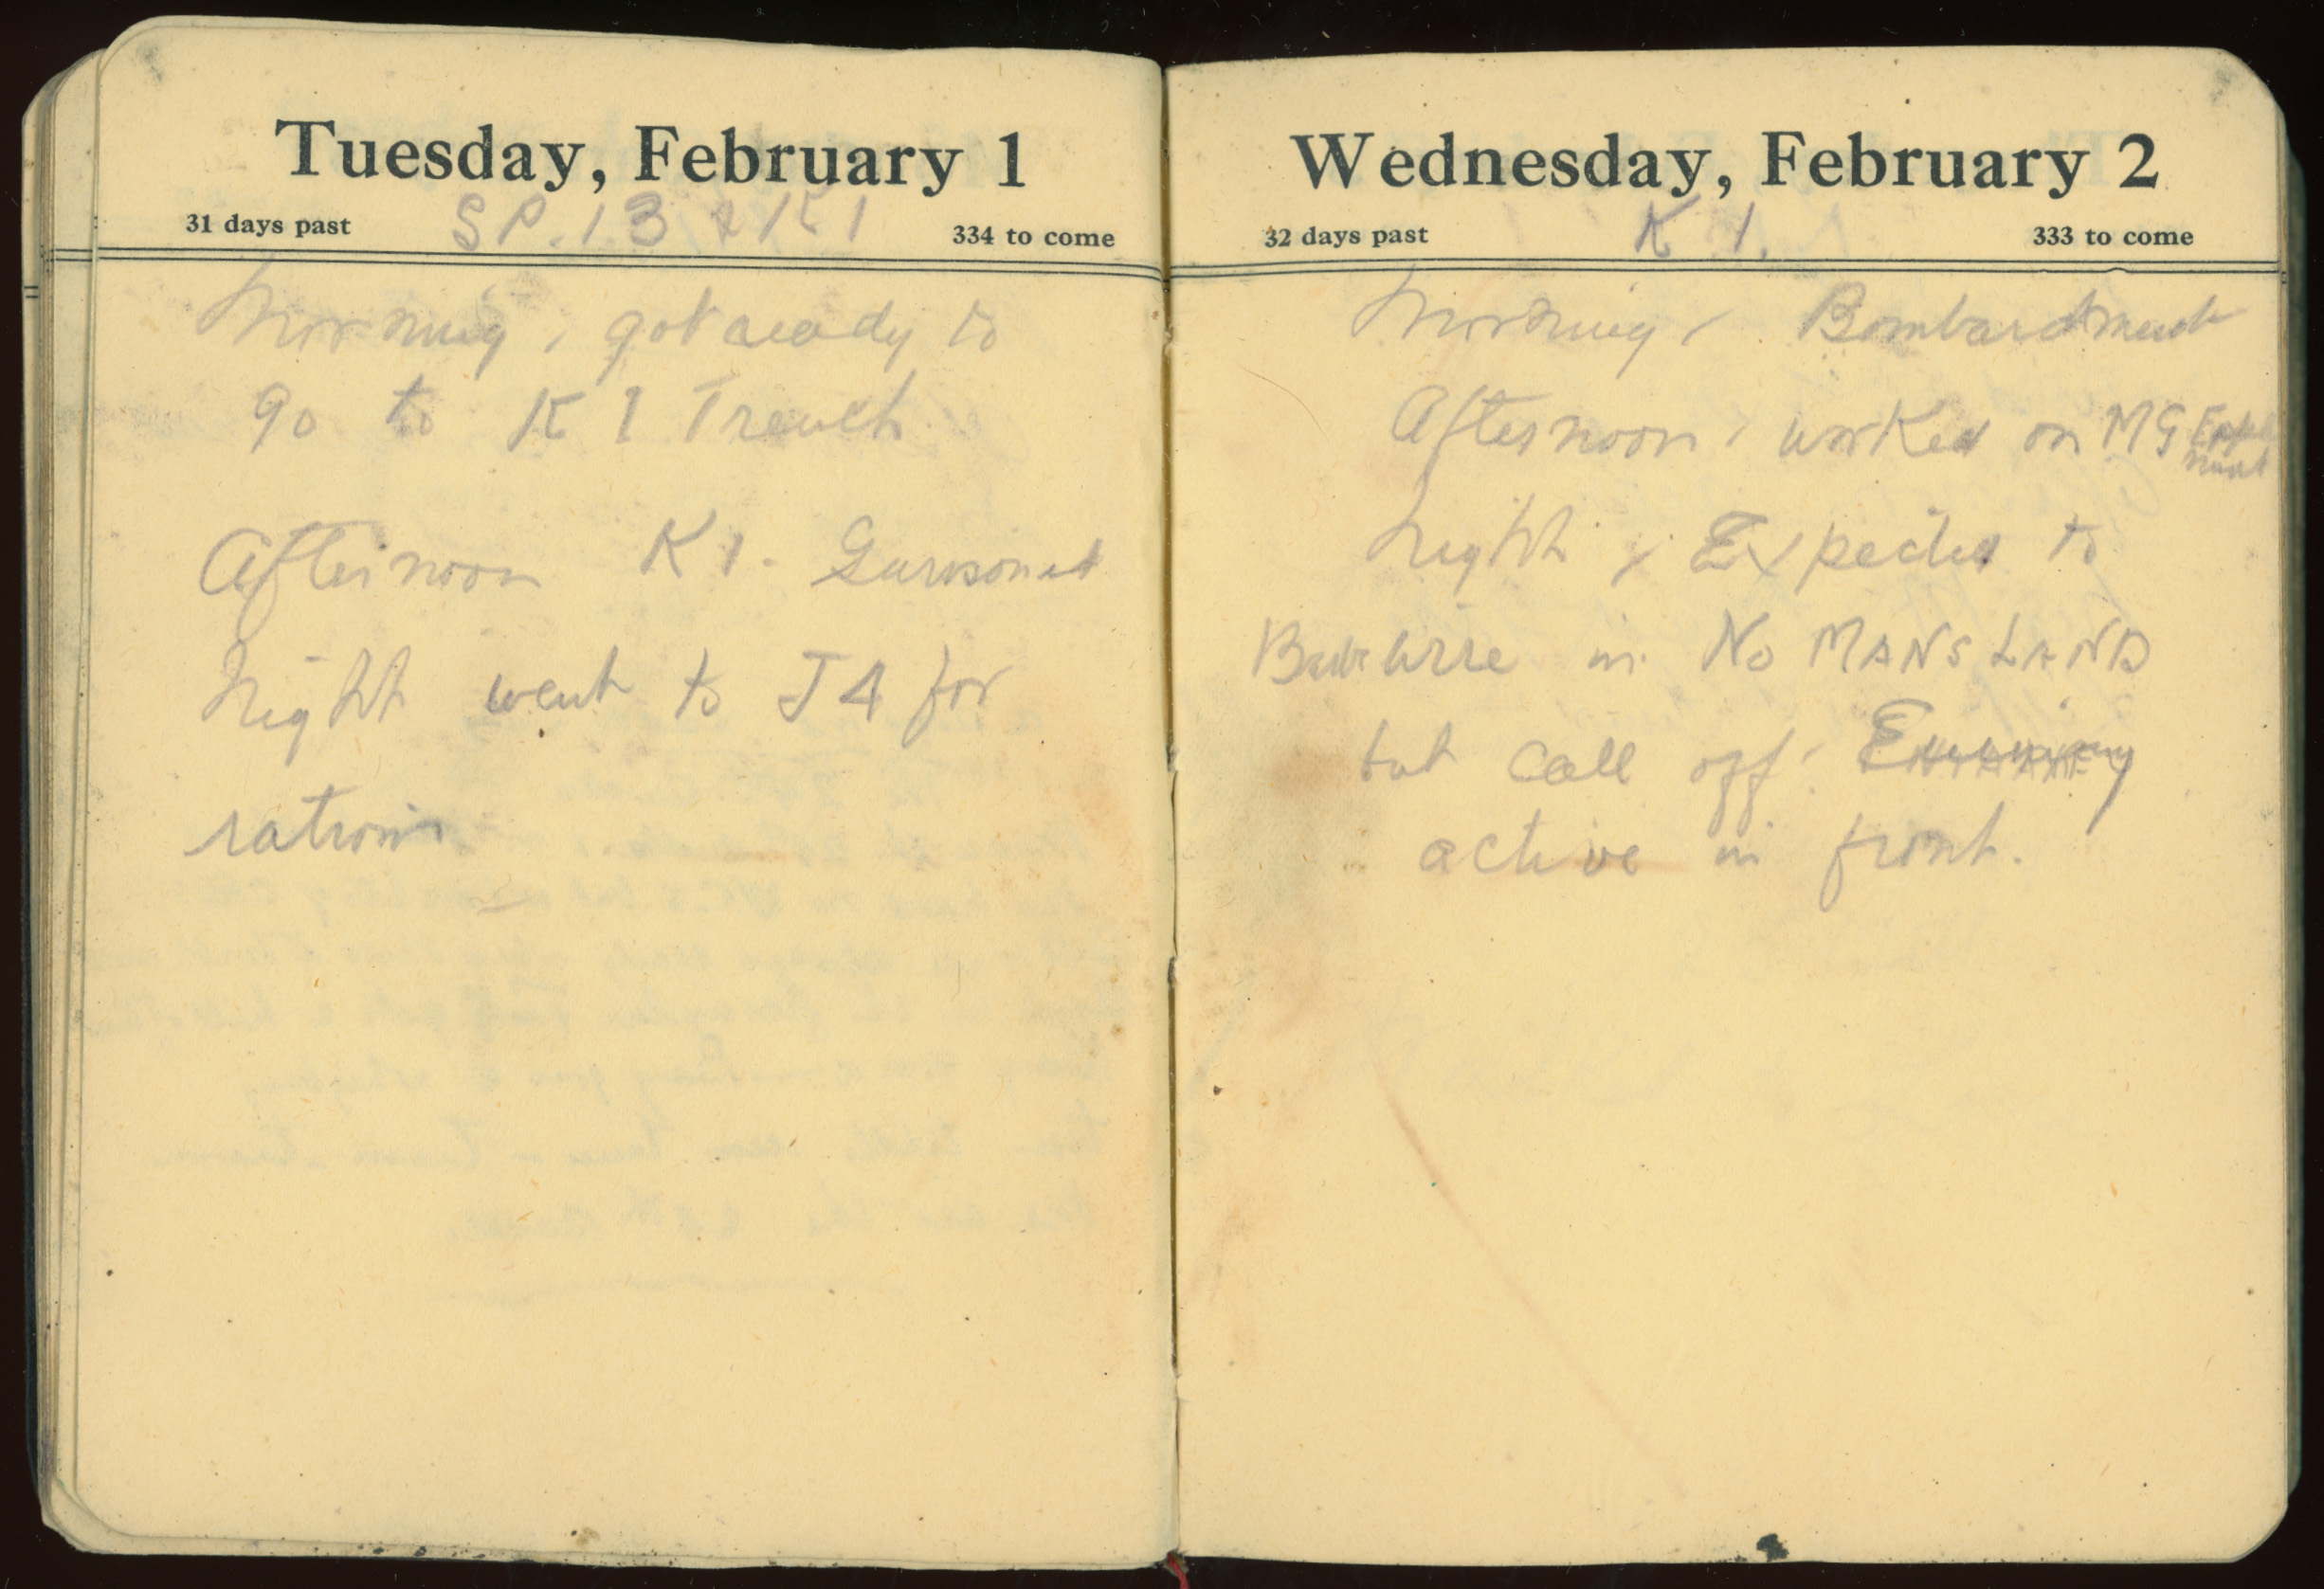 Tuesday, February 1
31 days past SP. 13 & K1 334 to come
Morning, got ready to
go to K 1 Trench
Afternoon K 1. Garrisoned
Night went to J4 for
rations
Wednesday, February 2
32 days past K 1. 333 to come
Morning, Bombardment
Afternoon, worked on MG
Night, Expected to
in No MANS LAND
but call off.
active in front.